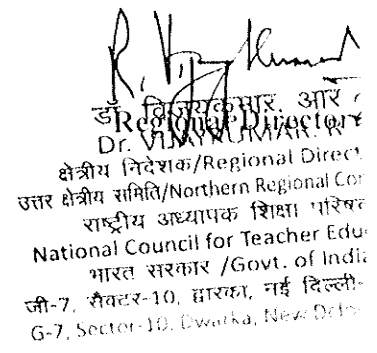 R. Vijay Kumar
डॉ. विजयकुमार. आर
Regional Director
Dr. VIJAYKUMAR. R
क्षेत्रीय निदेशक/Regional Direct
उत्तर क्षेत्रीय समिति/Northern Regional Co
राष्ट्रीय अध्यापक शिक्षा परिषद
National Council for Teacher Edu
भारत सरकार /Govt. of India
जी-7, सैक्टर-10, द्वारका, नई दिल्ली-
G-7, Sector-10, Dwarka, New Delh